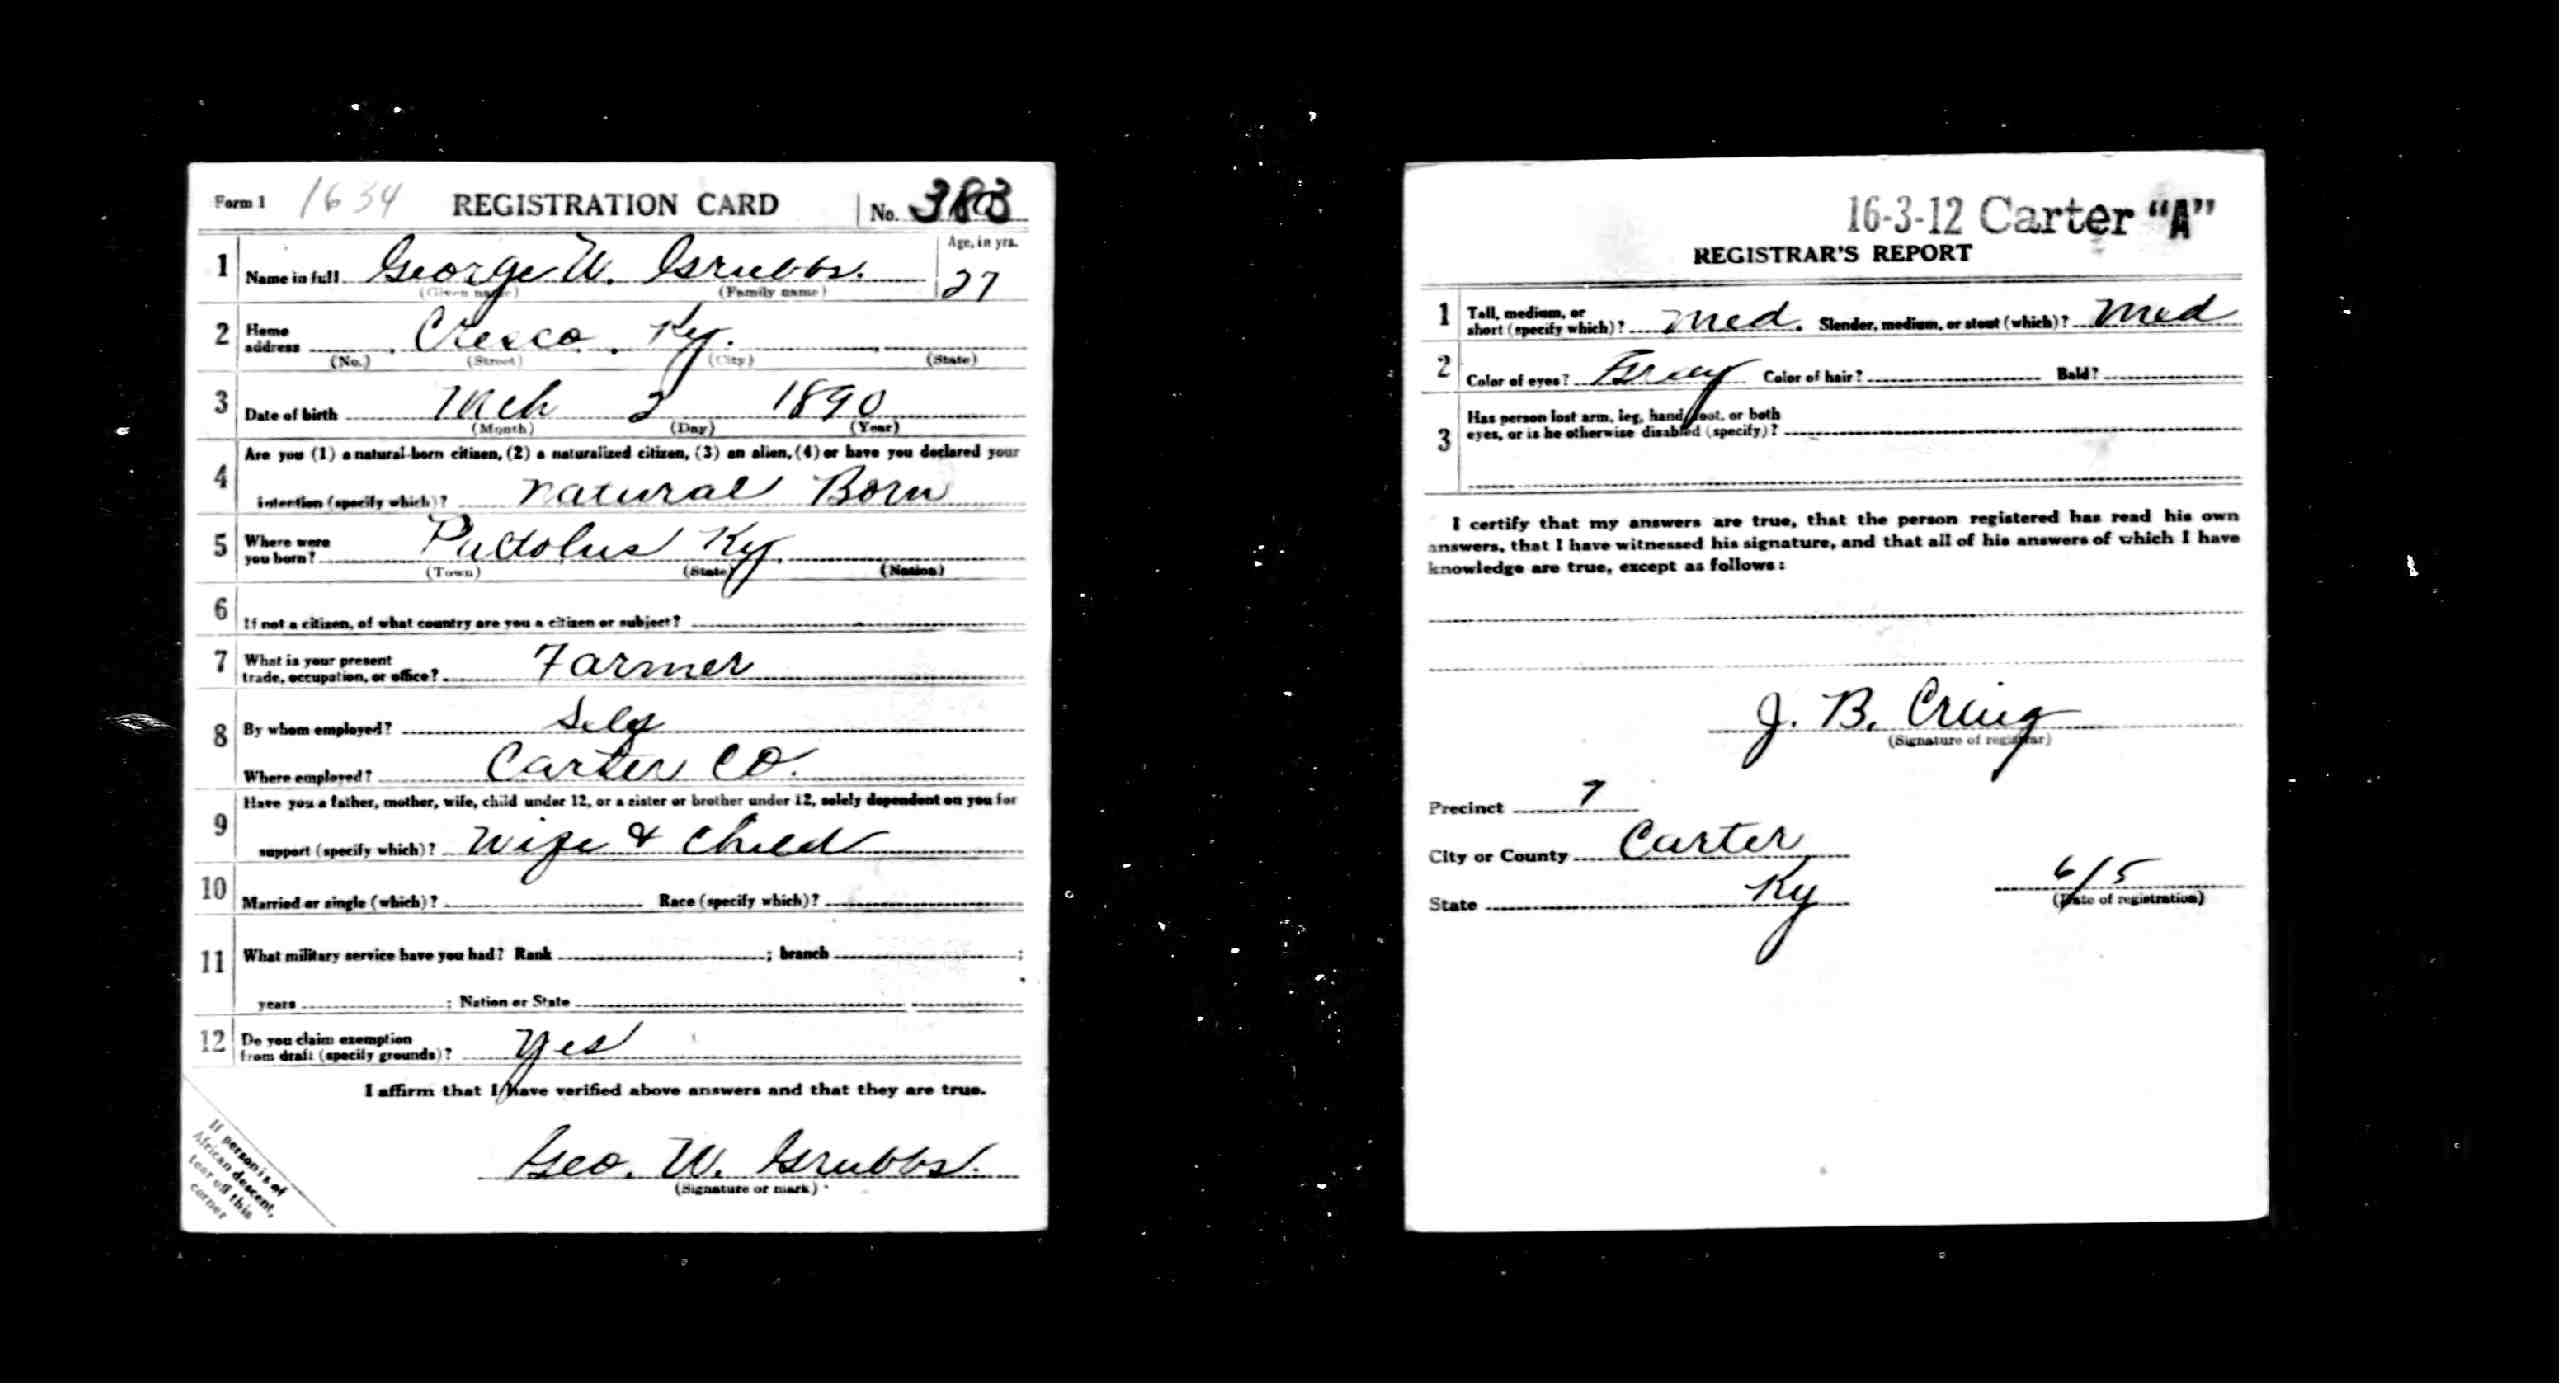 Form 1 1634 REGISTRATION CARD No. 383
1 Name in full George W. Grubbs. Age, in yrs. 27
(Given name) (Family name)
2 Home address Cresco, Ky.
(No.) (Street) (City) (State)
3 Date of birth Mch 2 1890
(Month) (Day) (Year)
4 Are you (1) a natural-born citizen, (2) a naturalized citizen, (3) an alien, (4) or have you declared your
intention (specify which)? Natural Born
5 Where were you born? Pactolus Ky.
(Town) (State) (Nation)
6 If not a citizen, of what country are you a citizen or subject?
7 What is your present
trade, occupation, or office? Farmer
8 By whom employed? Self
Where employed? Carter Co.
9 Have you a father, mother, wife, child under 12, or a sister or brother under 12, solely dependent on you for
support (specify which)? Wife & Child
10 Married or single (which)? Race (specify which)?
11 What military service have you had? Rank ; branch ;
years ; Nation or State
12 Do you claim exemption
from draft (specify grounds)? Yes
I affirm that I have verified above answers and that they are true.
Geo. W. Grubbs.
(Signature or mark)
If person is of
African descent,
tear off this
corner
16-3-12 Carter "A"
REGISTRAR'S REPORT
1 Tall, medium, or
short (specify which)? Med. Slender, medium, or stout (which)? Med
2 Color of eyes? Gray Color of hair? Bald?
3 Has person lost arm, leg, hand, foot, or both
eyes, or is he otherwise disabled (specify)?
I certify that my answers are true, that the person registered has read his own
answers, that I have witnessed his signature, and that all of his answers of which I have
knowledge are true, except as follows:
J. B. Craig
(Signature of registrar)
Precinct 7
City or County Carter
State Ky 6/5
(Date of registration)